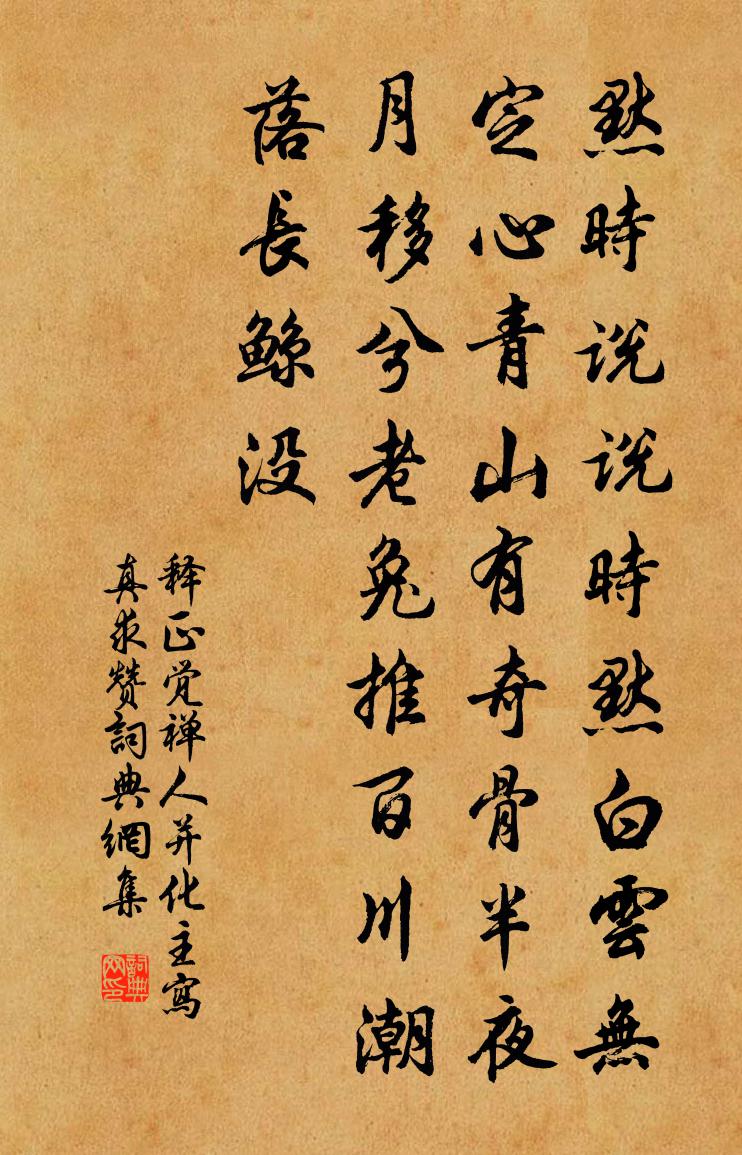 默時説説時默白雲無
定心青山有奇骨半夜
月移兮老兔推百川潮
落長鯨没
释正觉禅人并化主寫
真求赞詞典網集
詞典网印